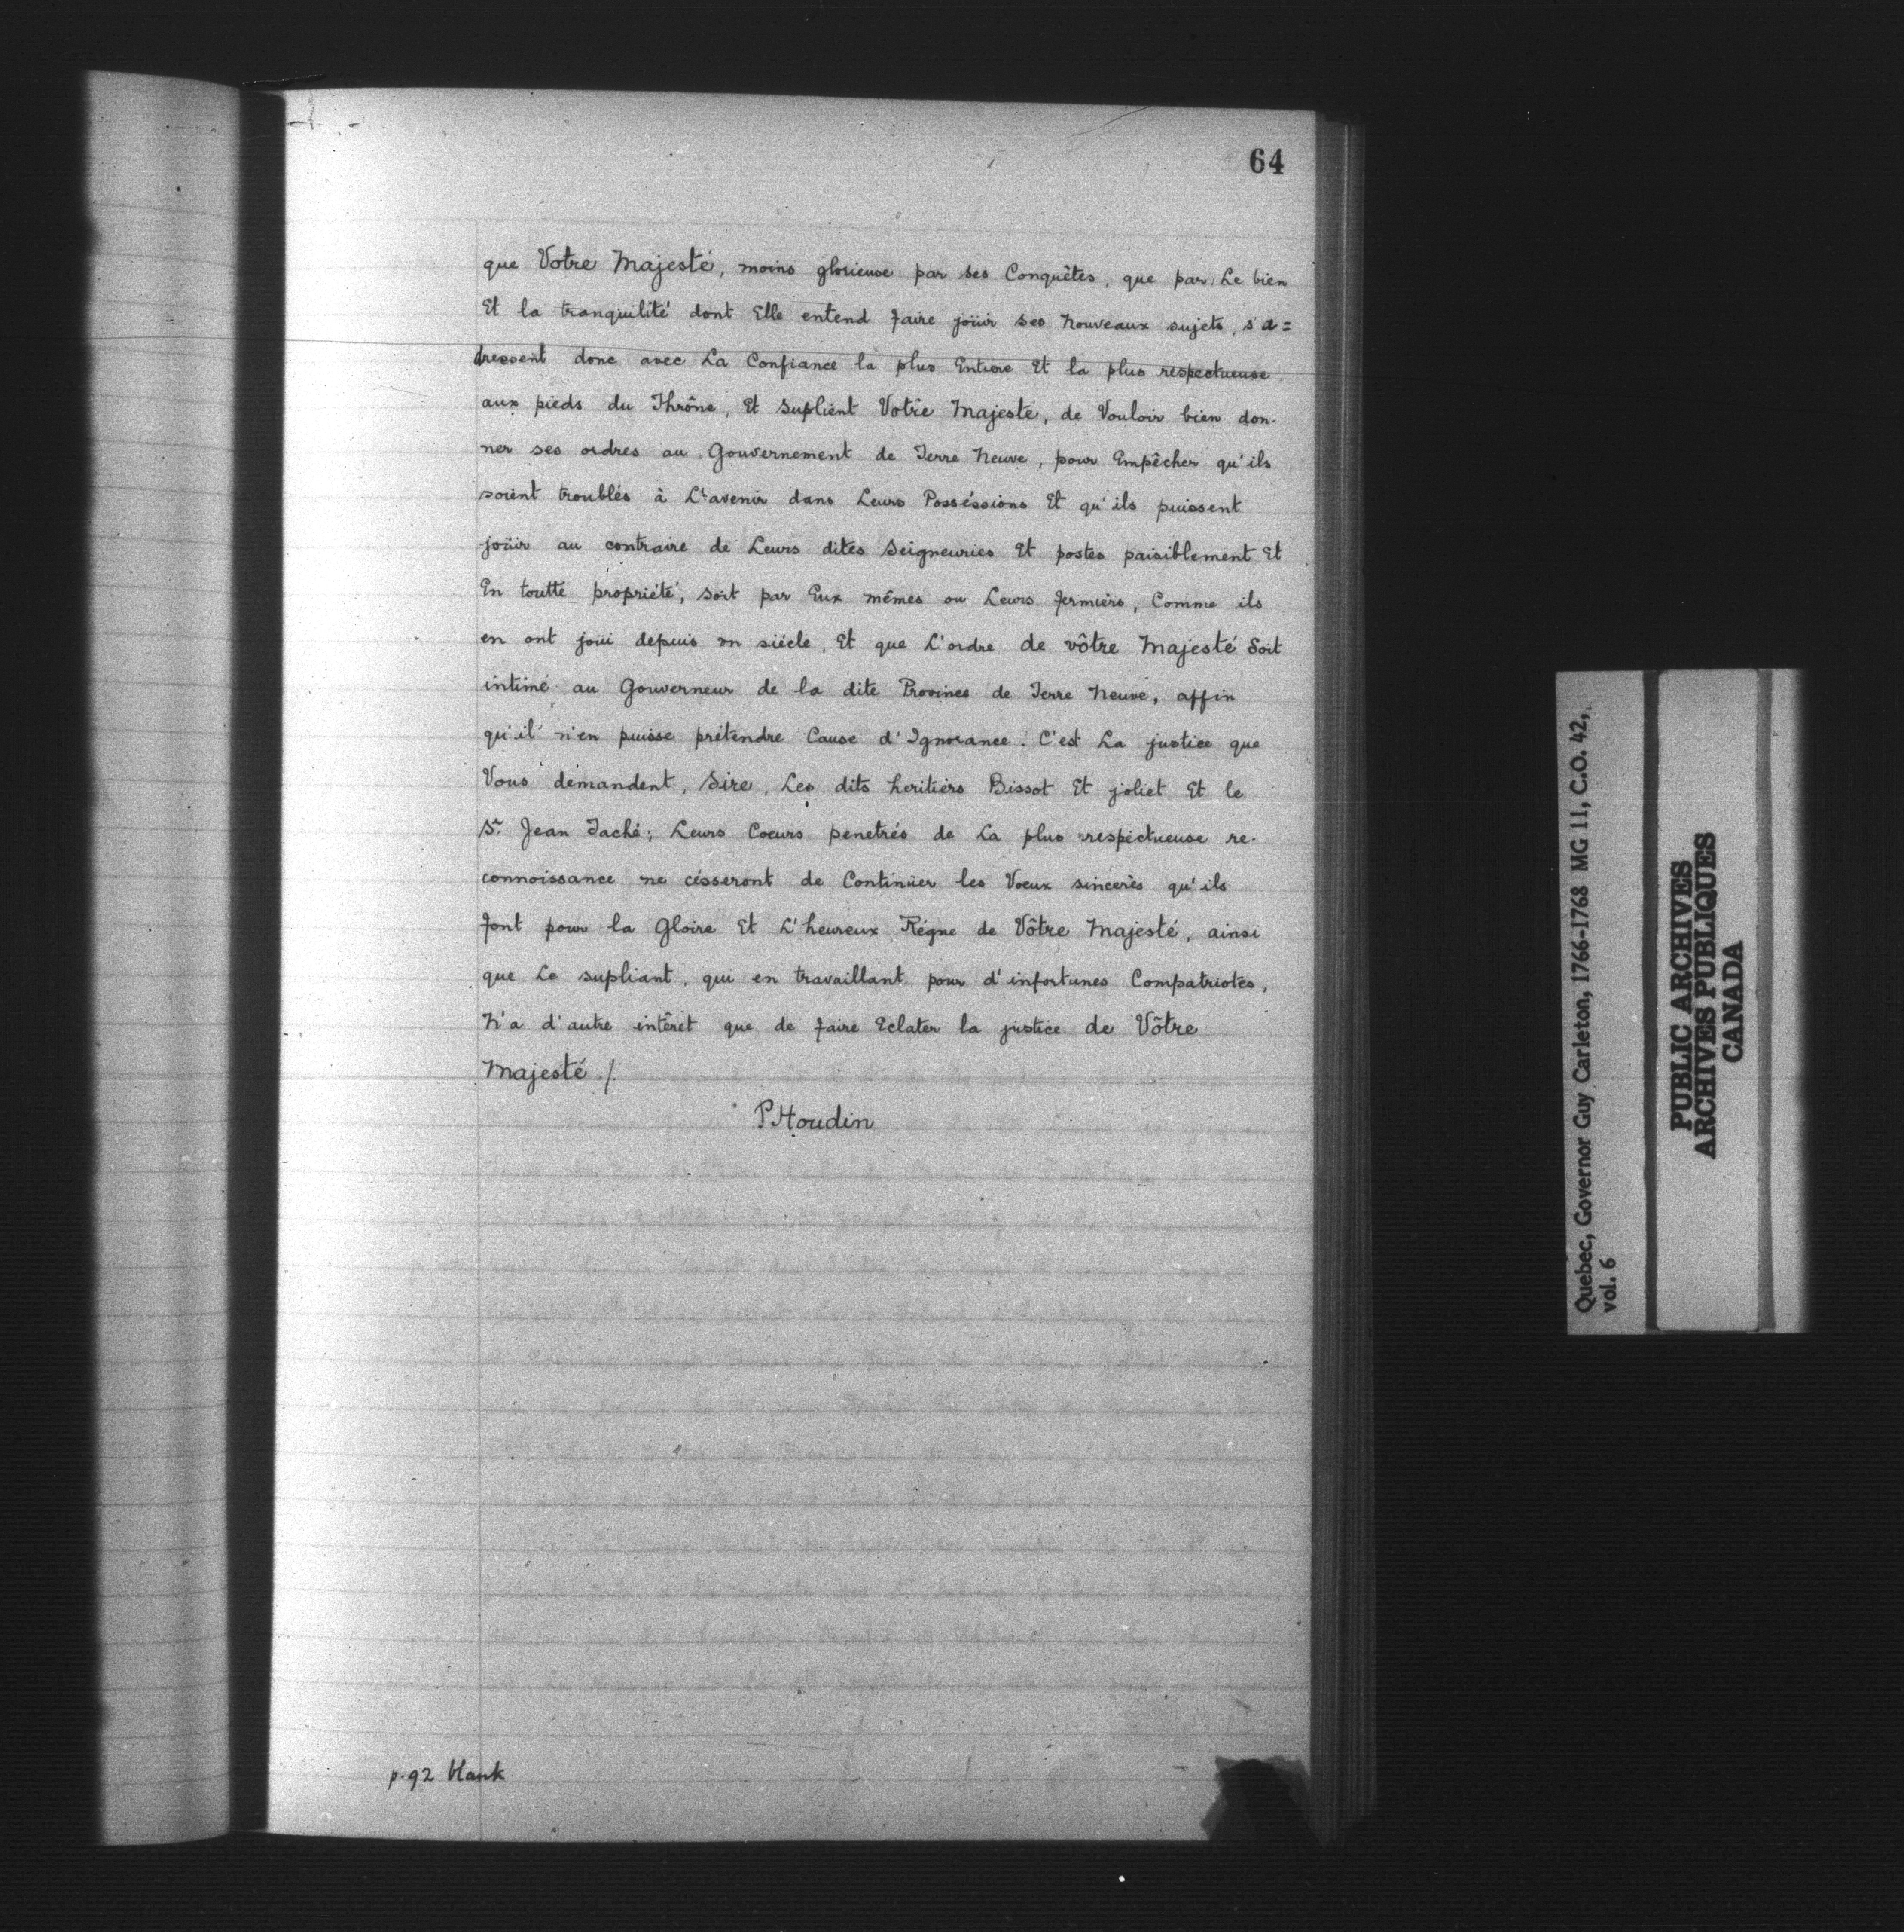 64
que Votre Majesté, moins glorieuse par ses Conquêtes, que par Le bien
Et la tranquilité dont Elle entend faire joüir ses Nouveaux sujets, s'a=
dressent donc avec La Confiance la plus Entiere Et la plus respectueuse
aux pieds du Thrône, Et Suplient Votre Majesté, de Vouloir bien don-
ner ses ordres au Gouvernement de Terre Neuve, pour Empêcher qu'ils
soient troublés à L'avenir dans Leurs Posséssions Et qu'ils puissent
joüir au contraire de Leurs dites Seigneuries Et postes paisiblement Et
En toutte propriété, soit par Eux mêmes ou Leurs fermiers, Comme ils
en ont joüi depuis un siécle, Et que L'ordre de vôtre Majesté Soit
intimé au Gouverneur de la dite Province de Terre Neuve, affin
qu'il n'en puisse prétendre Cause d'Ignorance. C'est La justice que
Vous demandent, Sire, Les dits heritiers Bissot Et joliet Et le
Sr. Jean Taché; Leurs Coeurs penetrés de La plus respectueuse re-
connoissance ne césseront de Continüer les Voeux sinceres qu'ils
font pour la Gloire Et L'heureux Régne de Vôtre Majesté, ainsi
que Le supliant, qui en travaillant pour d'infortunes Compatriotes,
N'a d'autre intêret que de faire Eclater la justice de Vôtre
Majesté ./.
P. Houdin
p. 92 blank
Quebec, Governor Guy Carleton, 1766-1768 MG 11, C.O. 42,
vol. 6
PUBLIC ARCHIVES
ARCHIVES PUBLIQUES
CANADA